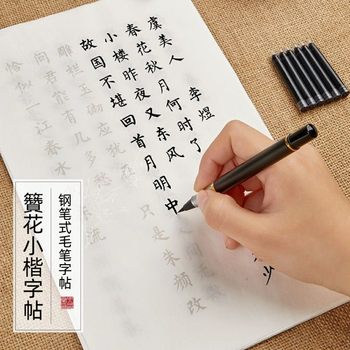 虞美人 李煜
春花秋月何时了 少
小楼昨夜又东风
故国不堪回首月明中
雕栏玉砌应犹 只是朱颜改
问君能有几多愁
恰似一江春水 流
钢笔式毛笔字帖
簪花小楷字帖